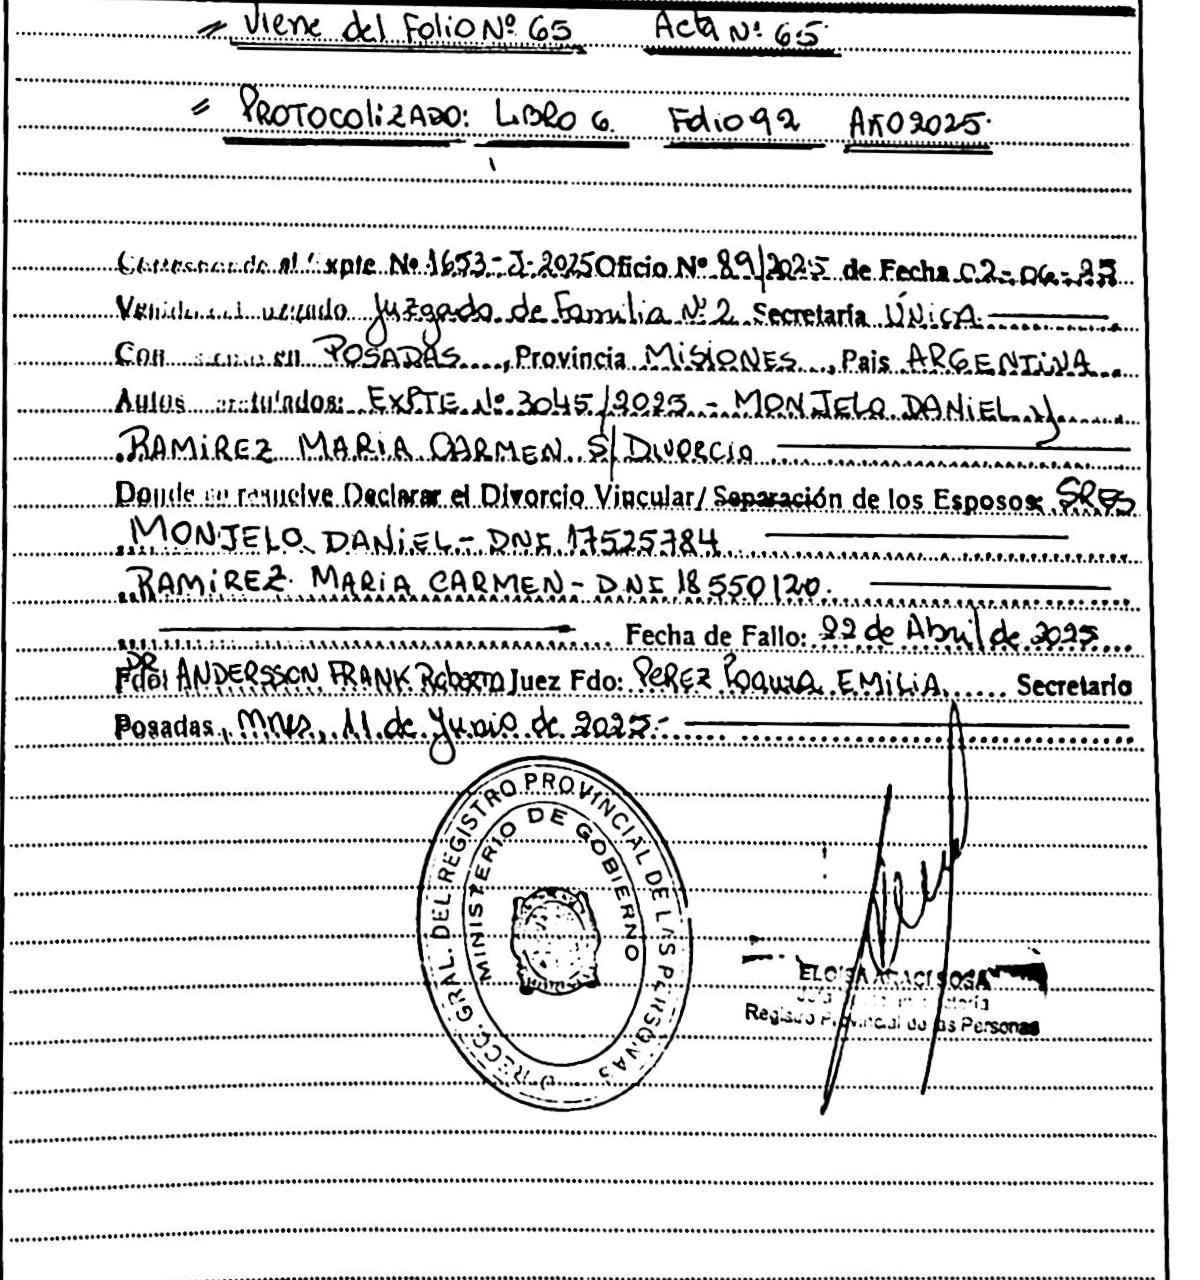 " Viene del Folio Nº 65 Acta Nº 65
" PROTOCOLIZADO: LIBRO 6. Folio 92 AÑO 2025.
Corresponde al Expte Nº 1653-J-2025 Oficio Nº 89/2025 de Fecha 02-06-25
Juzgado de Familia Nº 2 Secretaría ÚNICA
Con en POSADAS, Provincia MISIONES, Pais ARGENTINA
Autos caratulados: EXPTE Nº 3045/2025 - MONJELO DANIEL y
RAMIREZ MARIA CARMEN S/ DIVORCIO
Donde se resuelve Declarar el Divorcio Vincular/ Separación de los Esposos: SRES
MONJELO DANIEL - DNI 17525784
RAMIREZ MARIA CARMEN - DNI 18550120.
Fecha de Fallo: 22 de Abril de 2025
Fdo: DR ANDERSSON FRANK Roberto Juez Fdo: PEREZ EMILIA Secretario
Posadas, Mnes, 11 de Junio de 2025.-
DIRECC. GRAL. DEL REGISTRO PROVINCIAL DE LAS PERSONAS
MINISTERIO DE GOBIERNO
ELOISA ARACI SOSA
Registro Provincial de las Personas